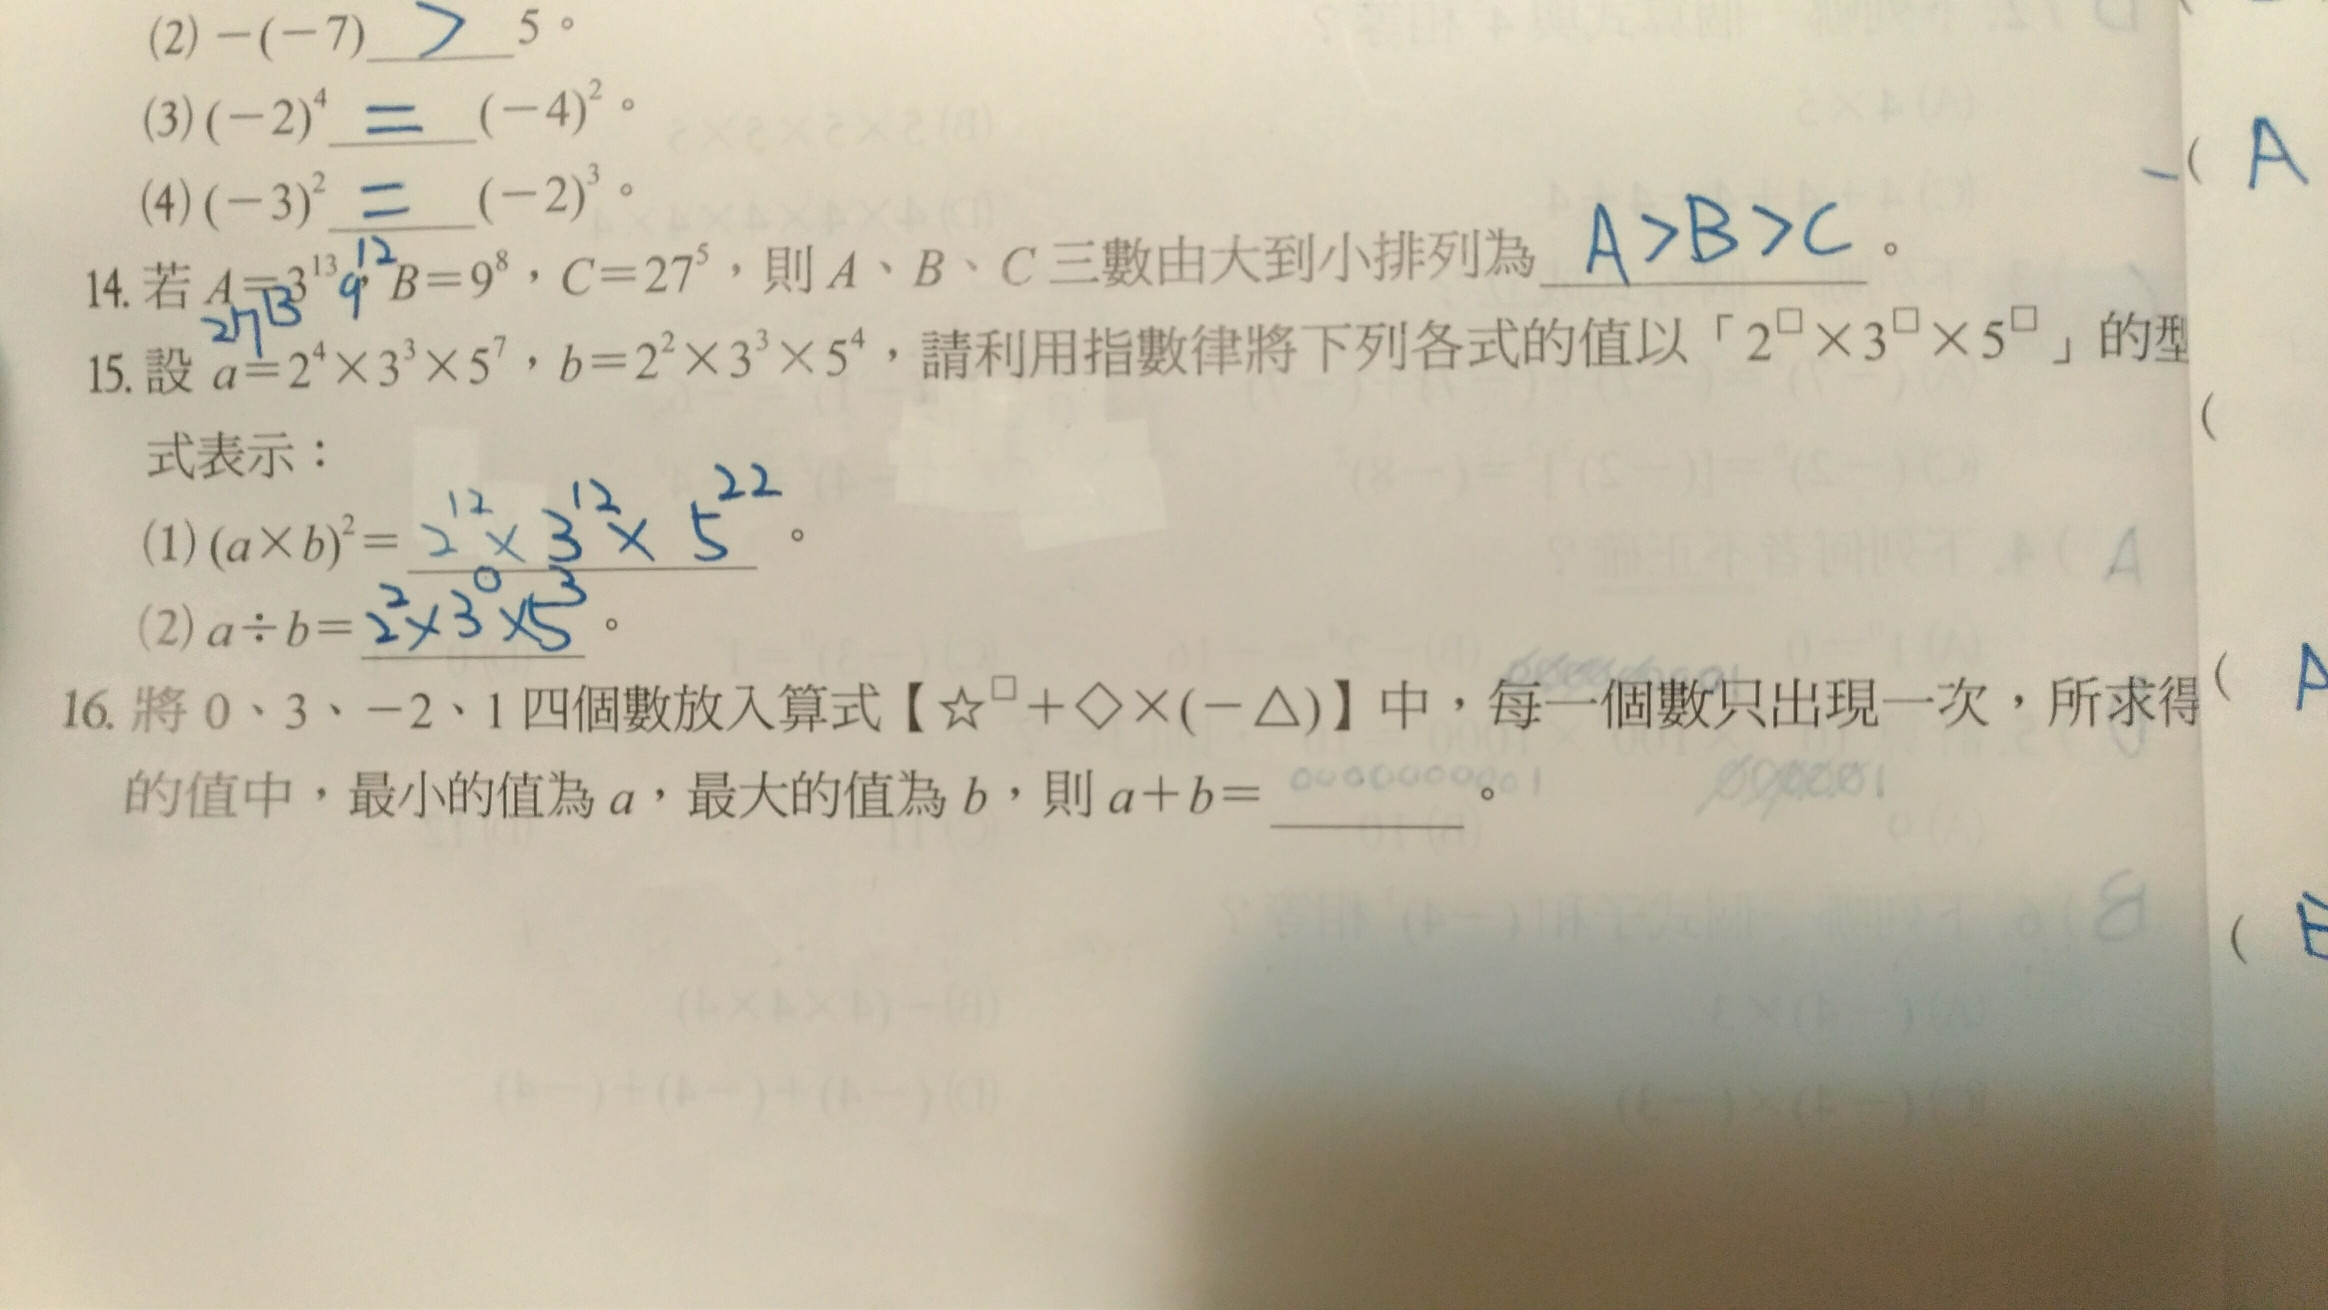 (2) －(－7) > 5。
(3) (－2)⁴ = (－4)²。
(4) (－3)² = (－2)³。
14. 若 A＝3¹³，B＝9⁸，C＝27⁵，則 A、B、C 三數由大到小排列為 A>B>C。
27¹³ 9¹²
15. 設 a＝2⁴×3³×5⁷，b＝2²×3³×5⁴，請利用指數律將下列各式的值以「2□×3□×5□」的型
式表示：
(1) (a×b)²＝2¹²×3¹²×5²²。
(2) a÷b＝2²×3⁰×5³。
16. 將 0、3、－2、1 四個數放入算式【☆□＋◇×(－△)】中，每一個數只出現一次，所求得
的值中，最小的值為 a，最大的值為 b，則 a＋b＝ 。
( A
(
( A
(